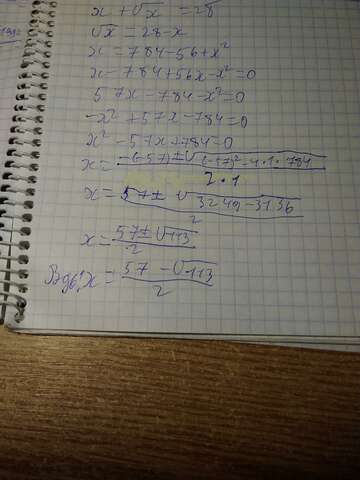 x + √x = 28
√x = 28 - x
x = 784 - 56 + x²
x - 784 + 56x - x² = 0
57x - 784 - x² = 0
-x² + 57x - 784 = 0
x² - 57x + 784 = 0
x = (-(-57) ± √((-57)² - 4·1·784)) / (2·1)
x = (57 ± √(3249 - 3136)) / 2
x = (57 ± √113) / 2
x = (57 - √113) / 2